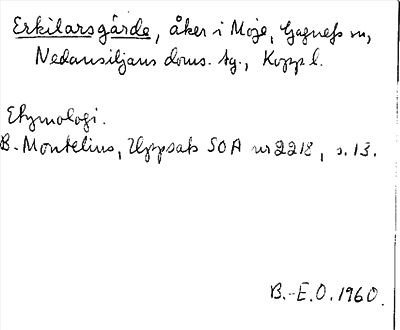 Erkilarsgärde, åker i Moje, Gagnefs sn,
Nedansiljans doms. tg., Kopp l.
Etymologi.
B. Montelius, Uppsats SOA nr 2218, s. 13.
B.-E.O. 1960.